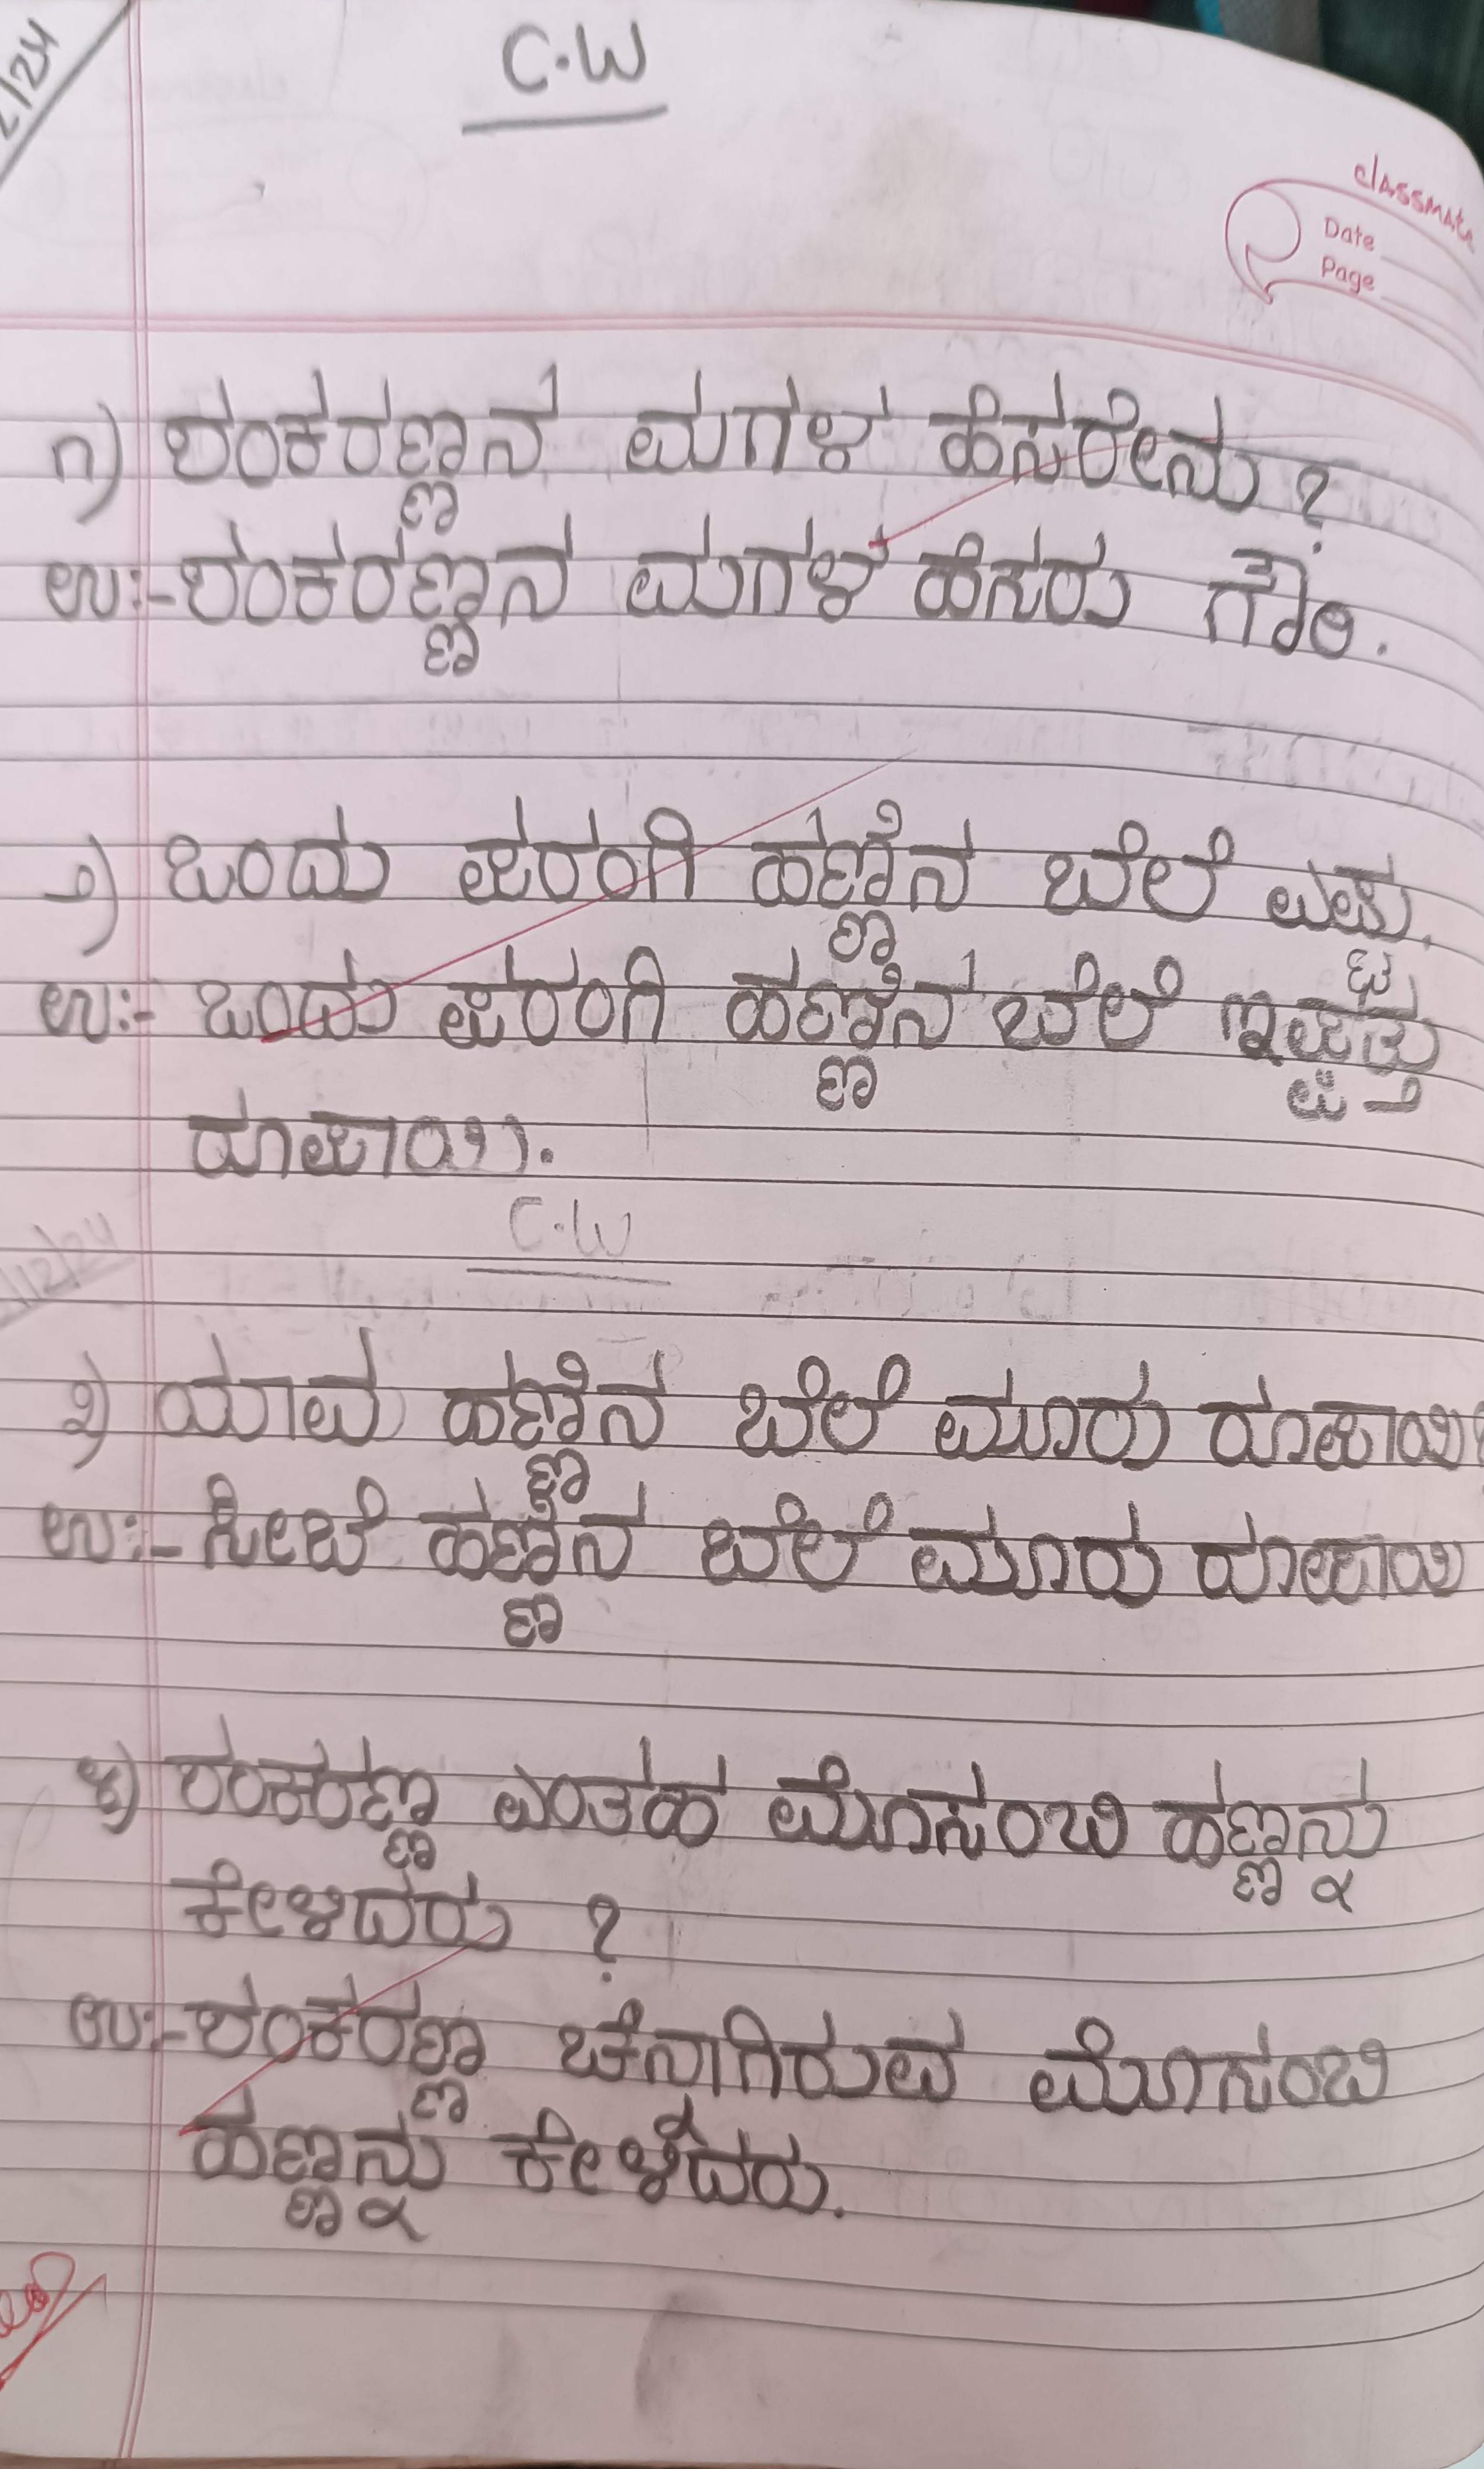 2/24
C.W
classmate
Date
Page
೧) ಶಂಕರಣ್ಣನ ಮಗಳ ಹೆಸರೇನು ?
ಉ:- ಶಂಕರಣ್ಣನ ಮಗಳ ಹೆಸರು ಗೌರಿ.
೨) ಒಂದು ಪರಂಗಿ ಹಣ್ಣಿನ ಬೆಲೆ ಎಷ್ಟು.
ಉ:- ಒಂದು ಪರಂಗಿ ಹಣ್ಣಿನ ಬೆಲೆ ಇಪ್ಪತ್ತು
ರೂಪಾಯಿ.
C.W
/12/24
೩) ಯಾವ ಹಣ್ಣಿನ ಬೆಲೆ ಮೂರು ರೂಪಾಯಿ?
ಉ:- ಸೀಬೆ ಹಣ್ಣಿನ ಬೆಲೆ ಮೂರು ರೂಪಾಯಿ
೪) ಶಂಕರಣ್ಣ ಎಂತಹ ಮೋಸಂಬಿ ಹಣ್ಣನ್ನು
ಕೇಳಿದರು ?
ಉ:- ಶಂಕರಣ್ಣ ಚೆನ್ನಾಗಿರುವ ಮೋಸಂಬಿ
ಹಣ್ಣನ್ನು ಕೇಳಿದರು.